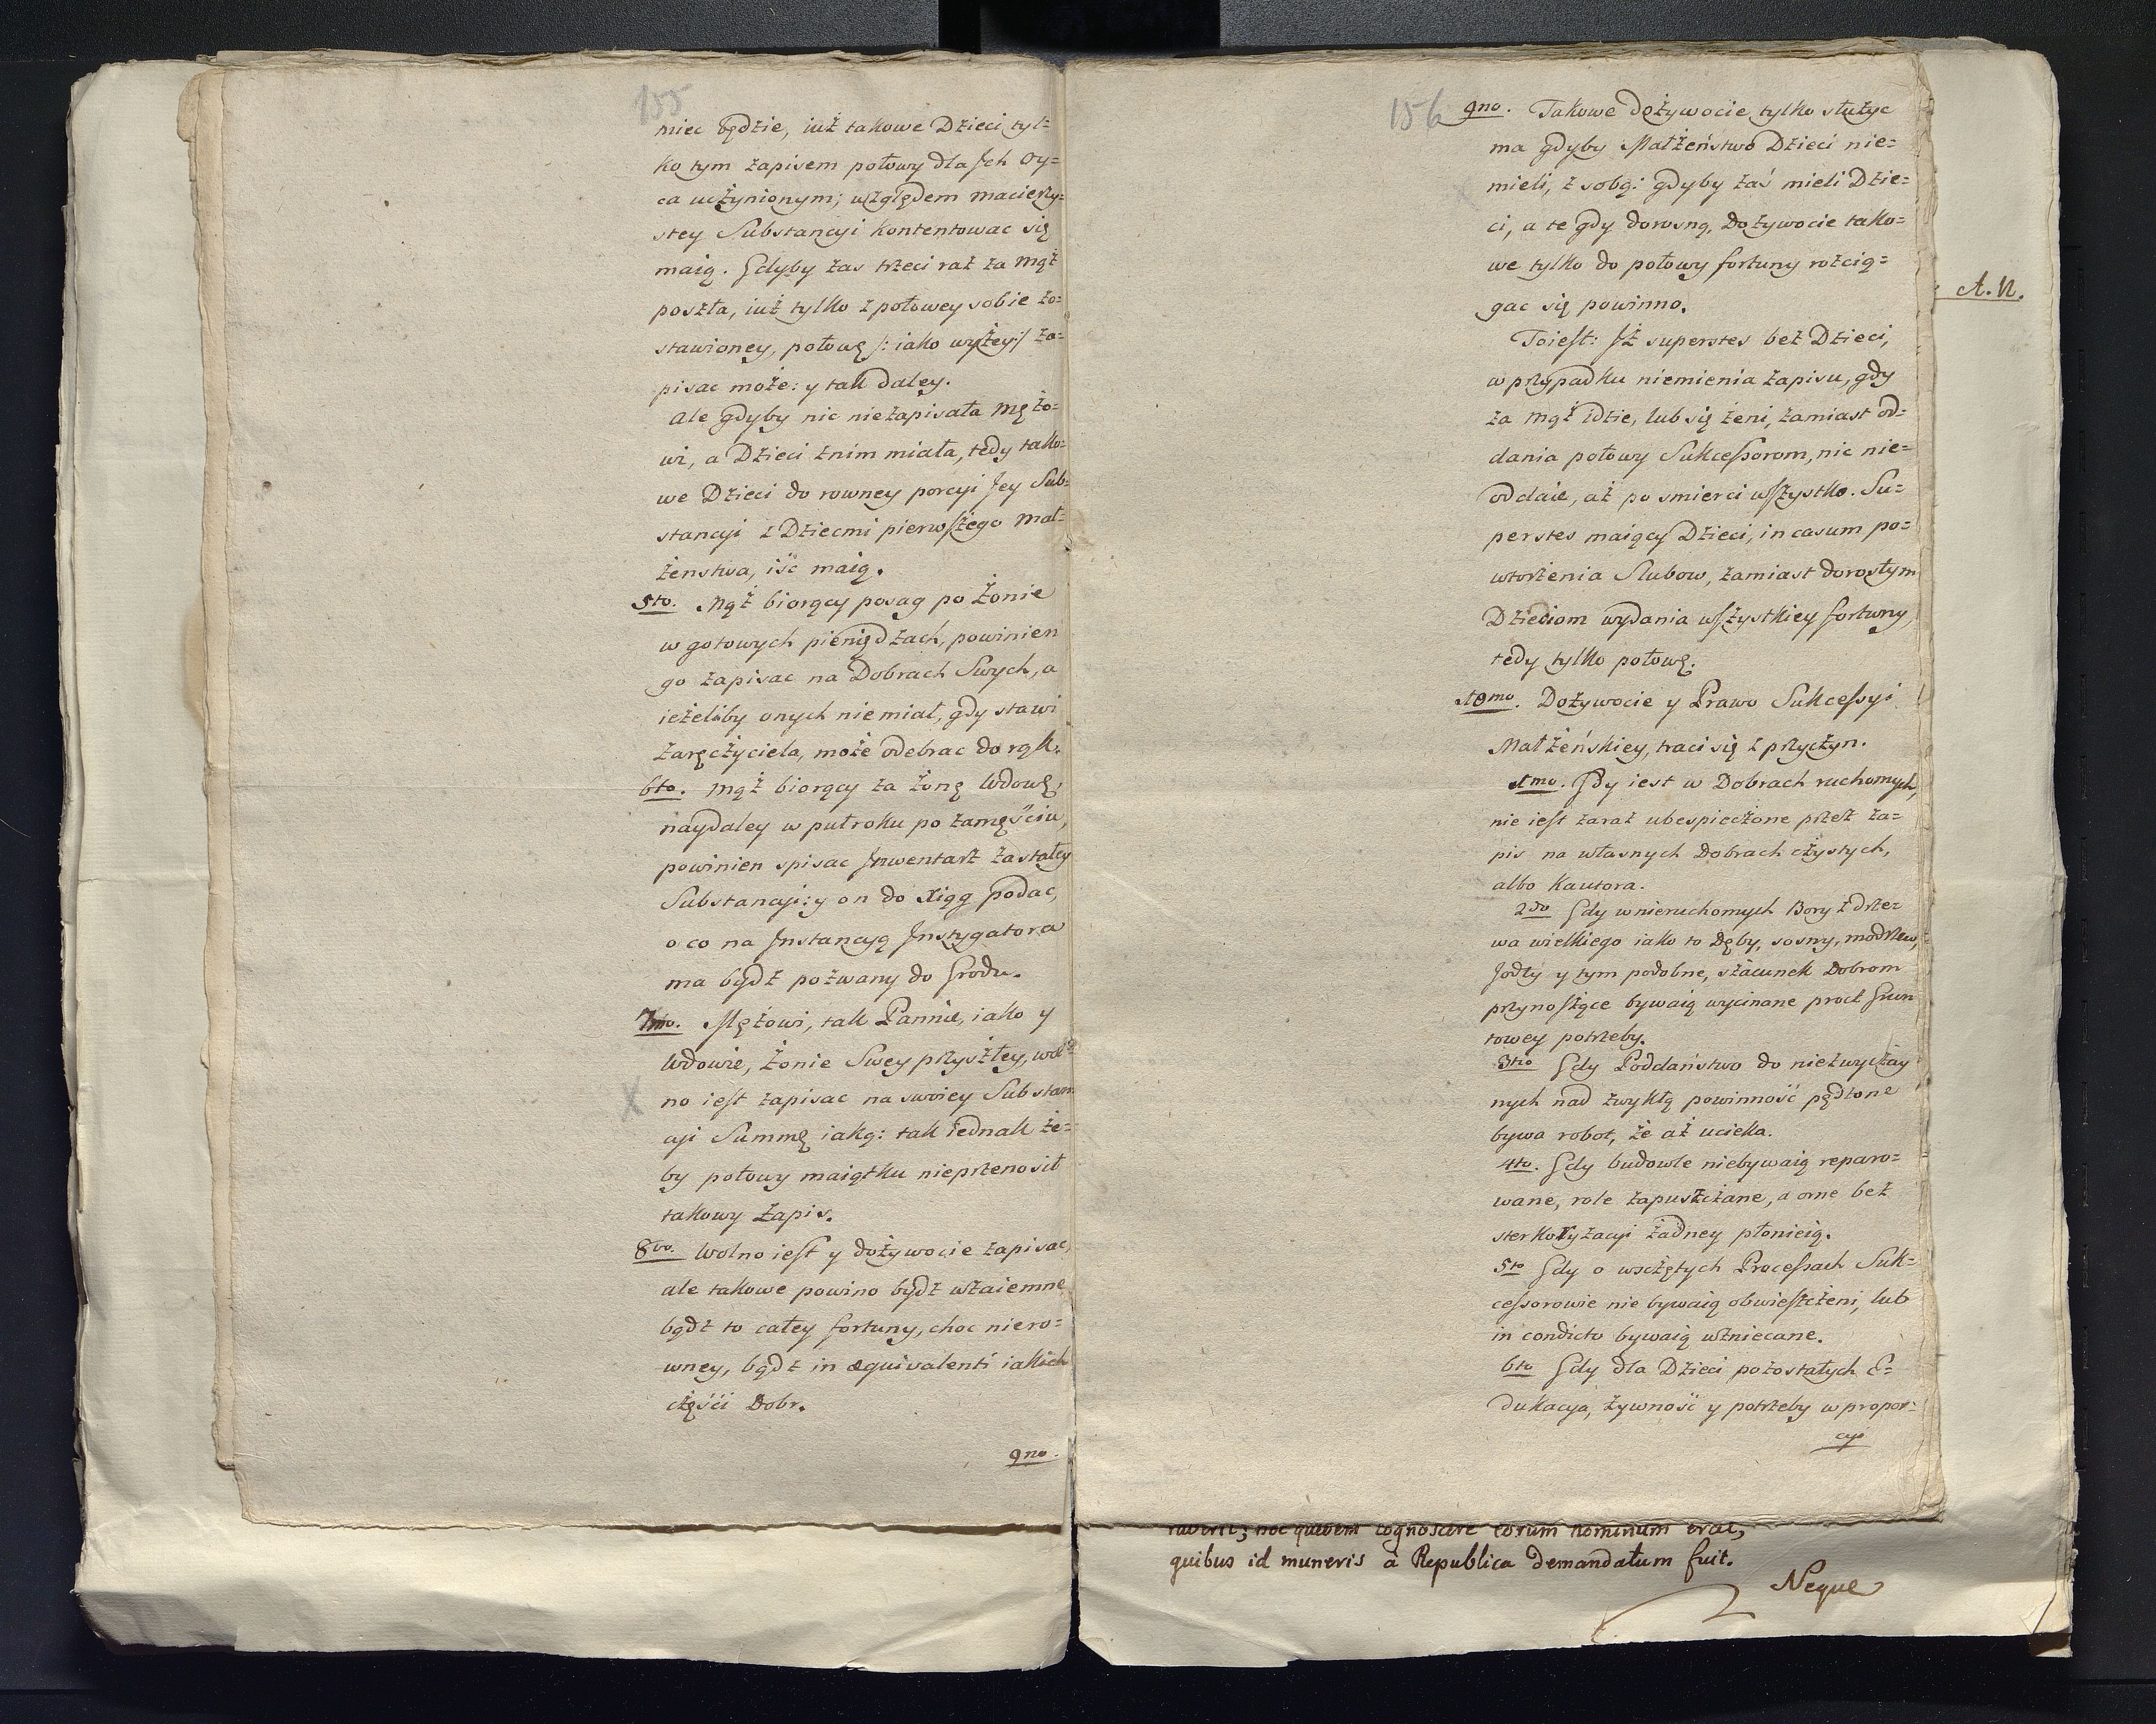 155
miec będzie, iuż takowe Dzieci tyl=
ko tym zapisem połowy dla Jch Oy=
ca uczynionym; względem macierzy=
stey Substancyi kontentowac się
maią. Gdyby zas trzeci raz za mąż
poszła, iuż tylko z połowey sobie zo=
stawioney, połowę /: iako wyżey:/ za=
pisac może: y tak daley.
Ale gdyby nic niezapisała mężo=
wi, a Dzieci znim miała, tedy tako=
we Dzieci do rowney porcyi Jey Sub=
stancyi z Dziecmi pierwszego mał=
żenstwa, iść maią.
5to. Mąż biorący posag po Żonie
w gotowych pieniędzach, powinien
go zapisac na Dobrach Swych, a
ieżeliby onych niemiał, gdy stawi
zaręczyciela, może odebrac do rąk.
6to. Mąż biorący za Żonę Wdowę,
naydaley w puł roku po zamęściu,
powinien spisac Jnwentarz zastałey
Substancyi: y on do xiąg podac,
o co na Jnstancyą Jnstygatora
ma bydź pozwany do Grodu.
7mo. Mężowi, tak Pannie, iako y
Wdowie, Żonie Swey przyszłey, wol=
no iest zapisac na swoiey Substan
cyi Summę iaką: tak iednak że=
by połowy maiątku nieprzenosił
takowy zapis.
8vo. Wolno iest y dożywocie zapisac,
ale takowe powino bydź wzaiemne
bądź to całey fortuny, choc niero=
wney, bądź in aequivalenti iakich
części Dobr.
9no.
156
9no. Takowe dożywocie tylko służyc
ma gdyby Małżeństwo Dzieci nie=
mieli, z sobą: gdyby zaś mieli Dzie=
ci, a te gdy dorosną, Dożywocie tako=
we tylko do połowy fortuny rozcią=
gac się powinno.
A. N.
Toiest: Jż superstes bez Dzieci,
w przypadku niemienia zapisu, gdy
za mąż idzie, lub się żeni, zamiast od=
dania połowy Sukcessorom, nic nie=
oddaie, aż po smierci wszystko. Su=
perstes maiący Dzieci, in casum po=
wtorzenia Slubow, zamiast dorosłym
Dzieciom wydania wszystkiey fortuny,
tedy tylko połowę.
10mo. Dożywocie y Prawo Sukcessyi
Małżeńskiey, traci się z przyczyn.
1mo. Gdy iest w Dobrach ruchomych,
nie iest zaraz ubespieczone przez za=
pis na własnych Dobrach czystych,
albo Kautora.
2do Gdy wnieruchomych Bory z drze=
wa wielkiego iako to Dęby, sosny, modrzew,
Jodły y tym podobne, szacunek Dobrom
przynoszące bywaią wycinane procz Grun
towey potrzeby.
3tio Gdy Poddaństwo do niezwyczay
nych nad zwykłą powinność pędzone
bywa robot, że aż ucieka.
4to. Gdy budowle niebywaią reparo=
wane, role zapuszczane, a orne bez
sterkoryzacyi żadney płonieią.
5to Gdy o wsczętych Processach Suk=
cessorowie nie bywaią obwieszczeni, lub
in condicto bywaią wzniecane.
6to Gdy dla Dzieci pozostałych E=
dukacya, żywność y potrzeby w propor=
cyi
quidem cognoscere eorum hominum erat,
quibus id muneris à Republica demandatum fuit.
Neque